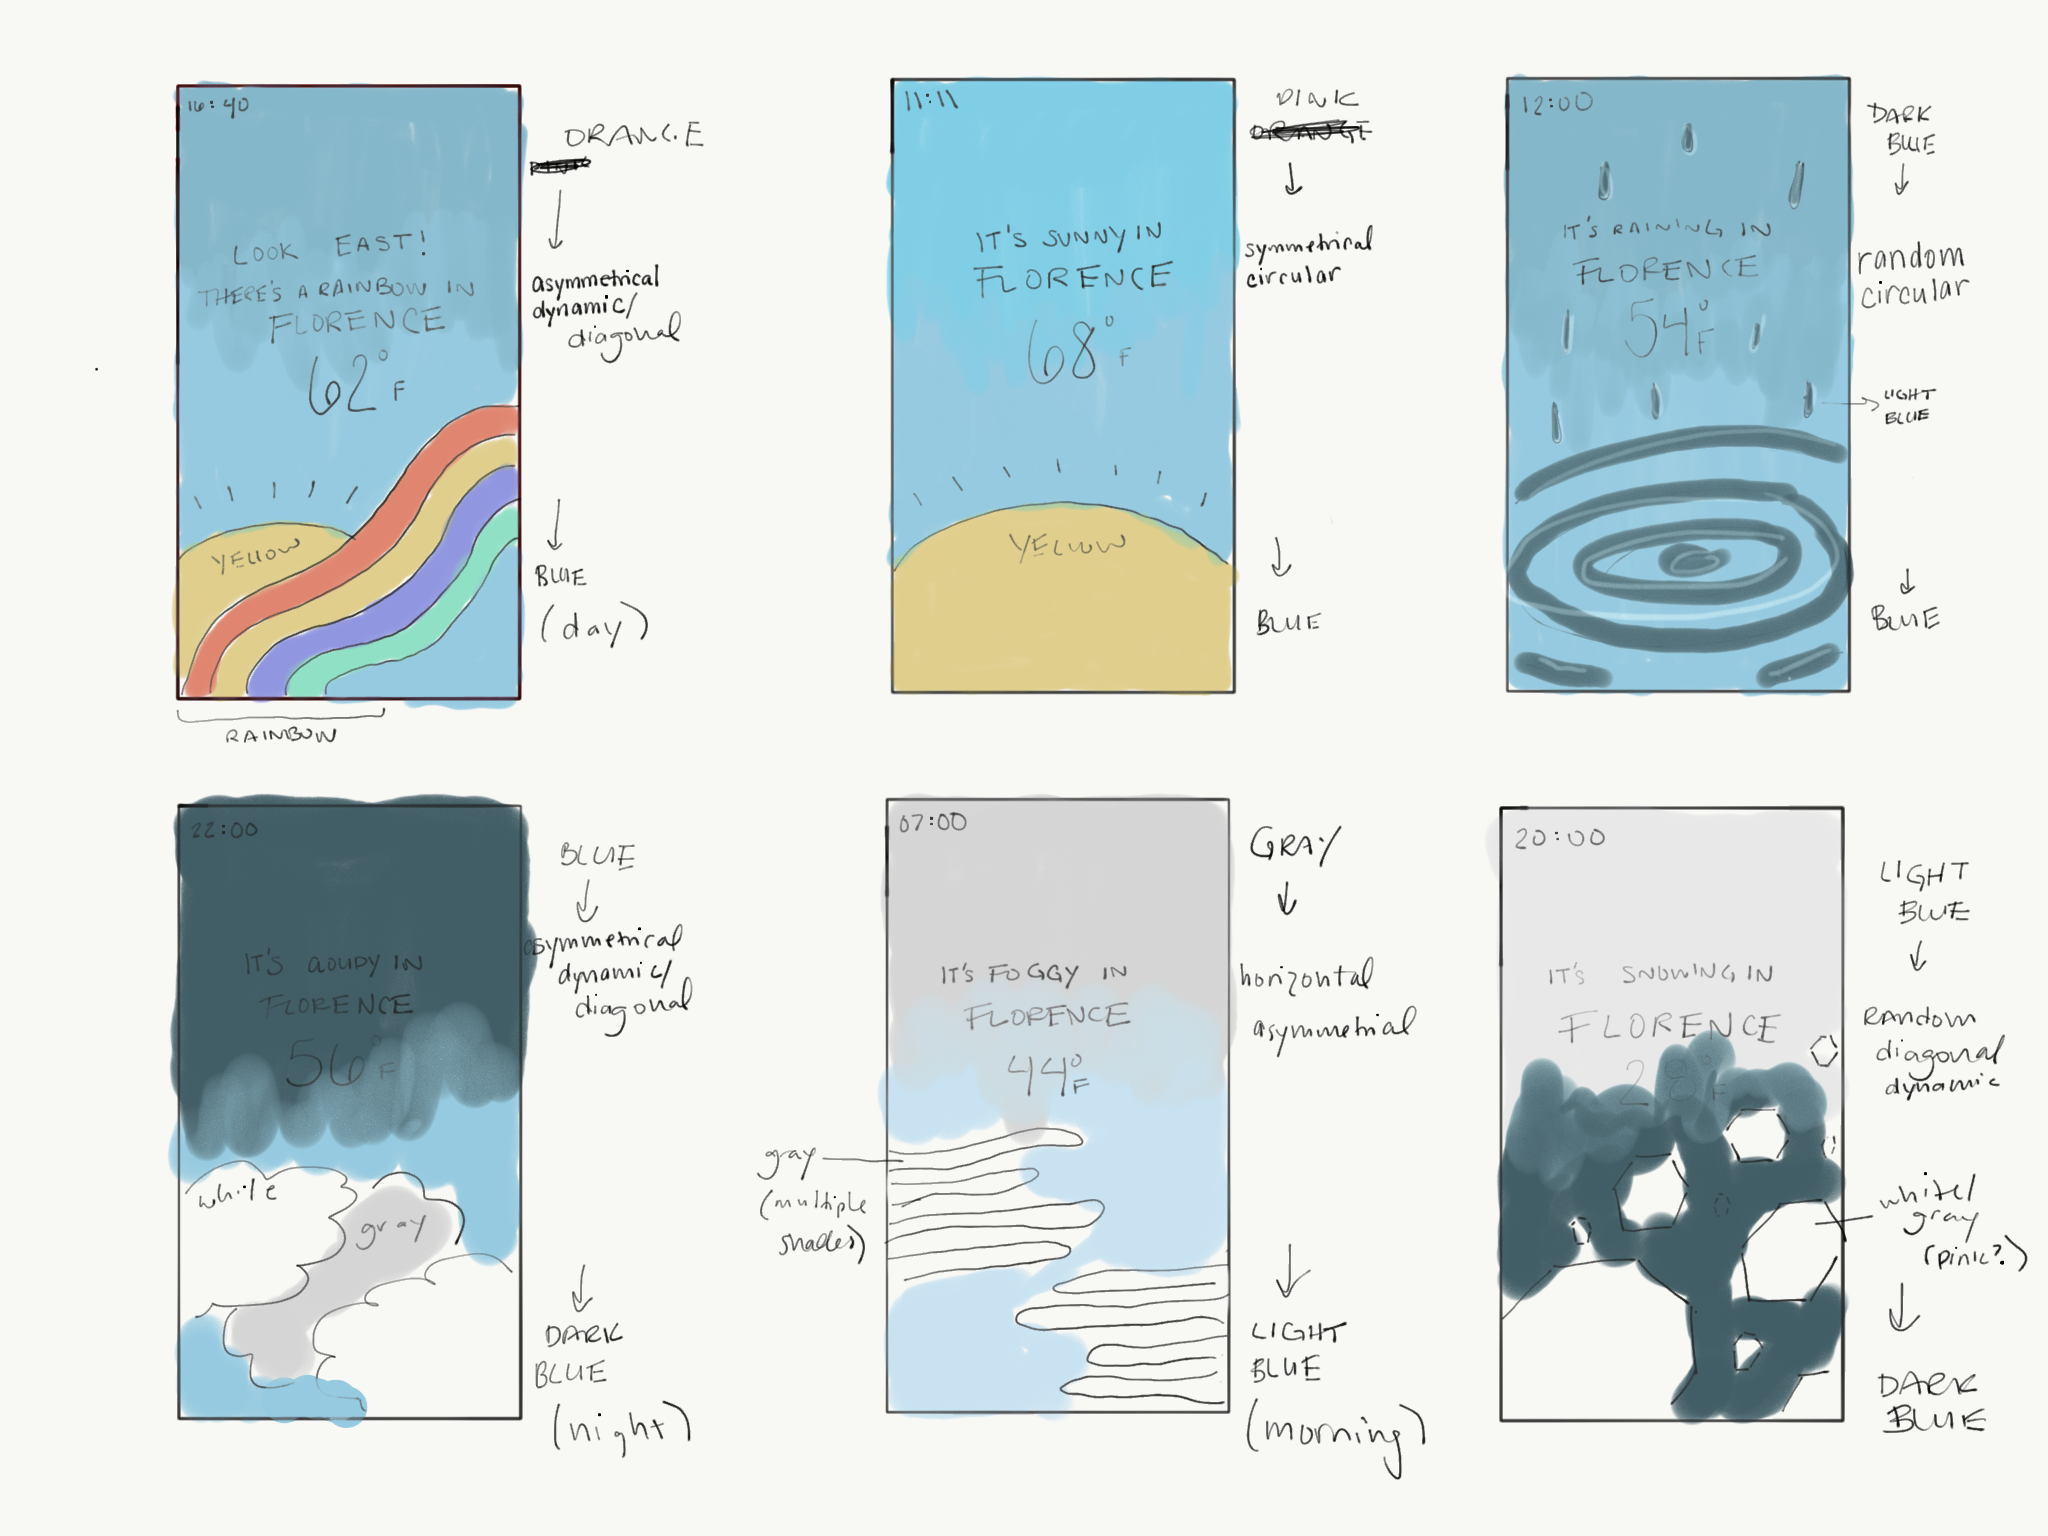 16:40
LOOK EAST!
THERE'S A RAINBOW IN
FLORENCE
62° F
YELLOW
RAINBOW
ORANGE
asymmetrical
dynamic/
diagonal
BLUE
(day)
11:11
IT'S SUNNY IN
FLORENCE
68° F
YELLOW
PINK
ORANGE
symmetrical
circular
BLUE
12:00
IT'S RAINING IN
FLORENCE
54° F
DARK
BLUE
random
circular
LIGHT
BLUE
BLUE
22:00
IT'S CLOUDY IN
FLORENCE
56° F
white
gray
BLUE
asymmetrical
dynamic/
diagonal
DARK
BLUE
(night)
07:00
IT'S FOGGY IN
FLORENCE
44° F
gray
(multiple
shades)
GRAY
horizontal
asymmetrial
LIGHT
BLUE
(morning)
20:00
IT'S SNOWING IN
FLORENCE
28° F
LIGHT
BLUE
RANDOM
diagonal
dynamic
white/
gray
(pink?)
DARK
BLUE